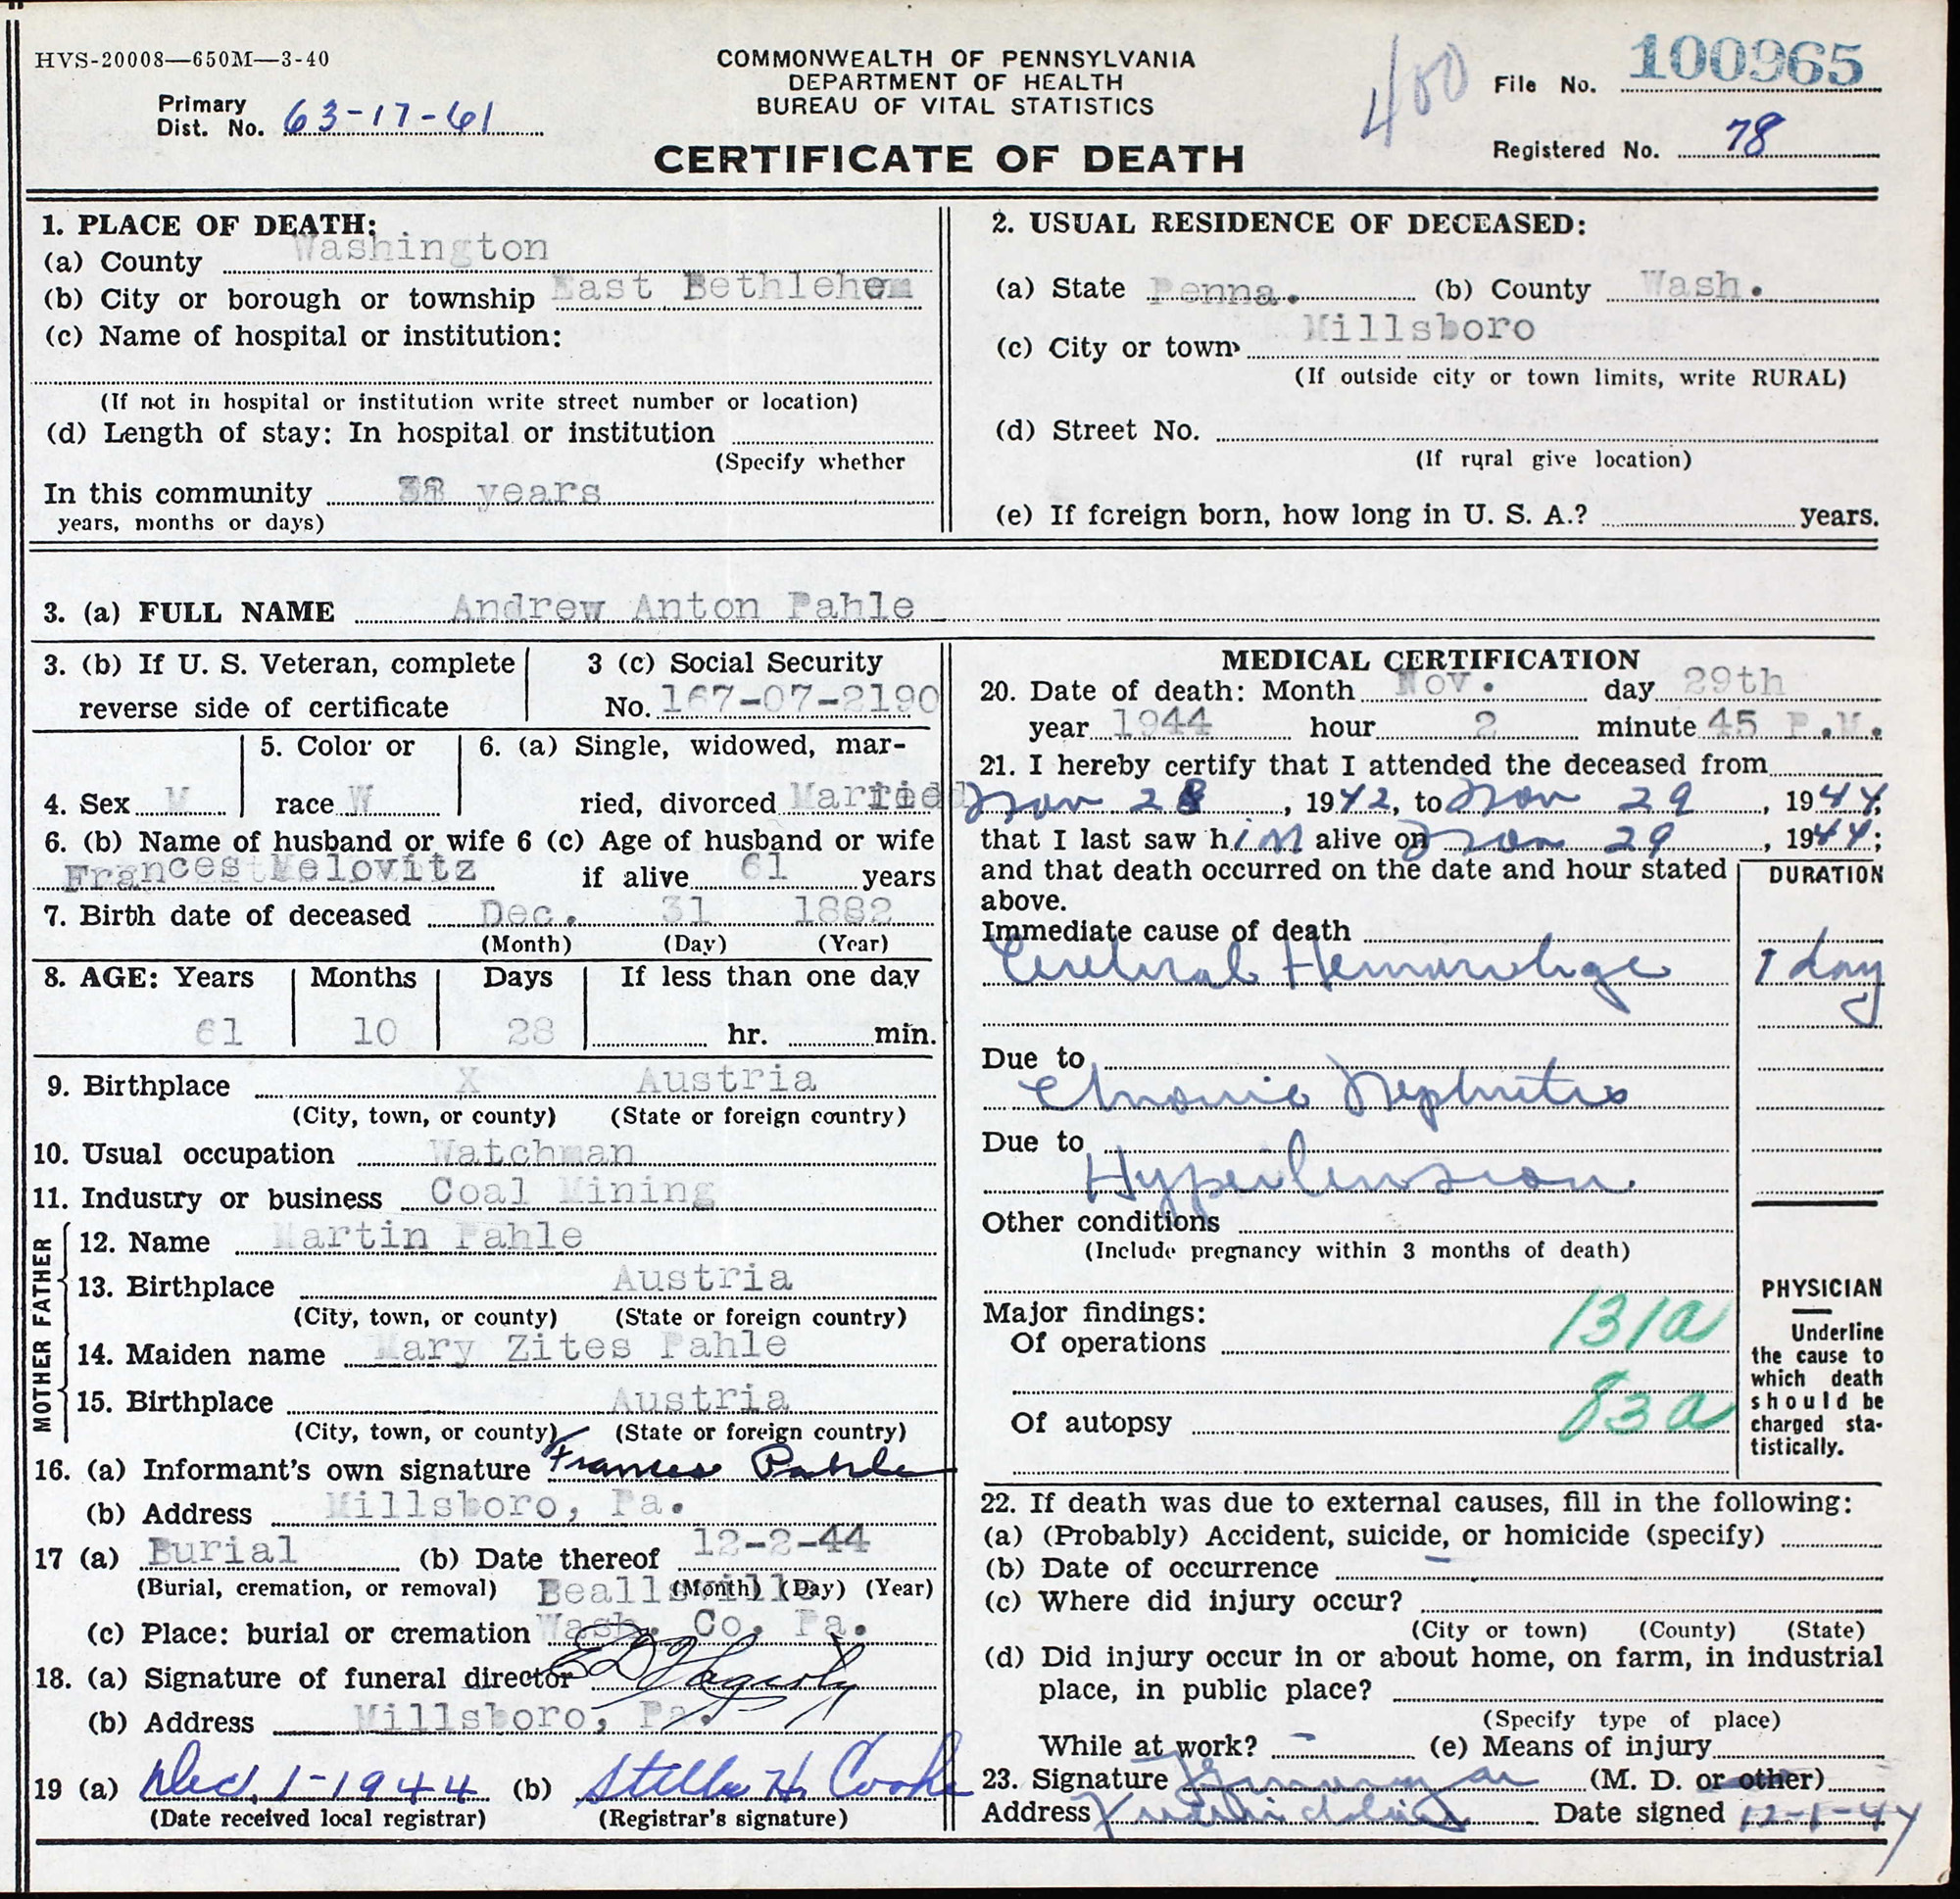 HVS-20008—650M—3-40
COMMONWEALTH OF PENNSYLVANIA
DEPARTMENT OF HEALTH
BUREAU OF VITAL STATISTICS
CERTIFICATE OF DEATH
400
File No. 100965
Primary
Dist. No. 63-17-61
Registered No. 78
1. PLACE OF DEATH:
(a) County Washington
(b) City or borough or township East Bethlehem
(c) Name of hospital or institution:
(If not in hospital or institution write street number or location)
(d) Length of stay: In hospital or institution
(Specify whether
In this community years
years, months or days)
2. USUAL RESIDENCE OF DECEASED:
(a) State Penna. (b) County Wash.
(c) City or town Millsboro
(If outside city or town limits, write RURAL)
(d) Street No.
(If rural give location)
(e) If foreign born, how long in U. S. A.? years.
3. (a) FULL NAME Andrew Anton Pahle
3. (b) If U. S. Veteran, complete
reverse side of certificate
3 (c) Social Security
No. 167-07-2190
4. Sex M
5. Color or
race W
6. (a) Single, widowed, mar-
ried, divorced Married
6. (b) Name of husband or wife 6 (c) Age of husband or wife
Frances Melovitz if alive 61 years
7. Birth date of deceased Dec. 31 1882
(Month) (Day) (Year)
8. AGE: Years Months Days If less than one day
61 10 28 hr. min.
9. Birthplace X Austria
(City, town, or county) (State or foreign country)
10. Usual occupation Watchman
11. Industry or business Coal Mining
FATHER
12. Name Martin Pahle
13. Birthplace Austria
(City, town, or county) (State or foreign country)
MOTHER
14. Maiden name Mary Zites Pahle
15. Birthplace Austria
(City, town, or county) (State or foreign country)
16. (a) Informant's own signature Frances Pahle
(b) Address Millsboro, Pa.
17 (a) Burial (b) Date thereof 12-2-44
(Burial, cremation, or removal) (Month) (Day) (Year)
Beallsville
(c) Place: burial or cremation Wash. Co. Pa.
18. (a) Signature of funeral director
(b) Address Millsboro, Pa.
19 (a) Dec. 1-1944 (b) Stella H. Cooke
(Date received local registrar) (Registrar's signature)
MEDICAL CERTIFICATION
20. Date of death: Month Nov. day 29th
year 1944 hour 2 minute 45 P.M.
21. I hereby certify that I attended the deceased from
Nov 28, 1942, to Nov 29, 1944;
that I last saw him alive on Nov 29, 1944;
and that death occurred on the date and hour stated
above.
DURATION
Immediate cause of death
Cerebral Hemorrhage 1 day
Due to
Chronic Nephritis
Due to
Hypertension
Other conditions
(Include pregnancy within 3 months of death)
Major findings:
Of operations 131a
Of autopsy 83a
PHYSICIAN
Underline
the cause to
which death
should be
charged sta-
tistically.
22. If death was due to external causes, fill in the following:
(a) (Probably) Accident, suicide, or homicide (specify)
(b) Date of occurrence
(c) Where did injury occur?
(City or town) (County) (State)
(d) Did injury occur in or about home, on farm, in industrial
place, in public place?
(Specify type of place)
While at work? (e) Means of injury
23. Signature (M. D. or other)
Address Date signed 12-1-44